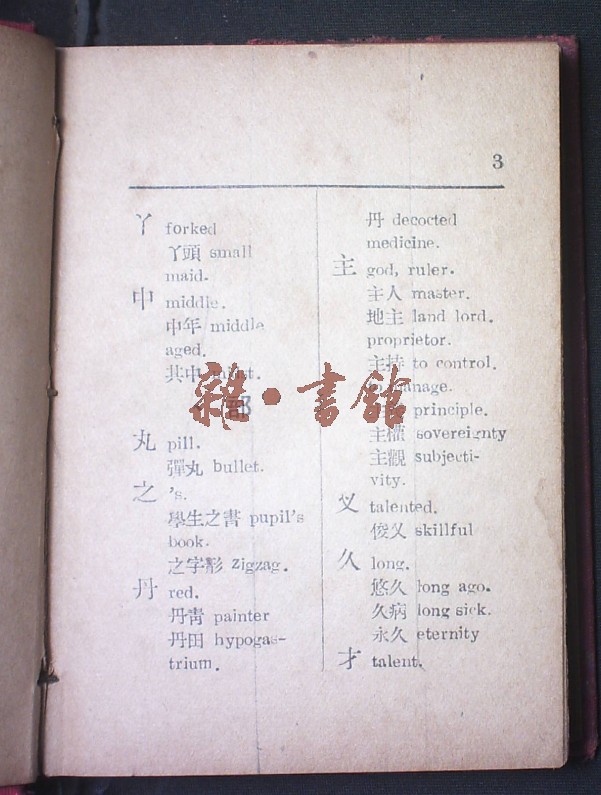 3
丫 forked
丫頭 small
maid.
中 middle.
中年 middle
aged.
共中
部
丸 pill.
彈丸 bullet.
之 's.
學生之書 pupil's
book.
之字形 zigzag.
丹 red.
丹靑 painter
丹田 hypogas-
trium.
丹 decocted
medicine.
主 god, ruler.
主人 master.
地主 land lord.
proprietor.
主持 to control.
principle.
主權 sovereignty
主觀 subjecti-
vity.
乂 talented.
俊乂 skillful
久 long.
悠久 long ago.
久病 long sick.
永久 eternity
才 talent.
雜·書館